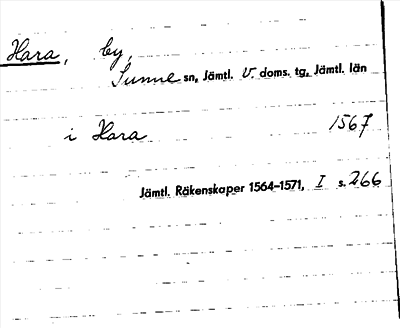 Hara, by,
Sunne sn, Jämtl. V. doms. tg, Jämtl. län
i Hara 1567
Jämtl. Räkenskaper 1564-1571, I s. 266